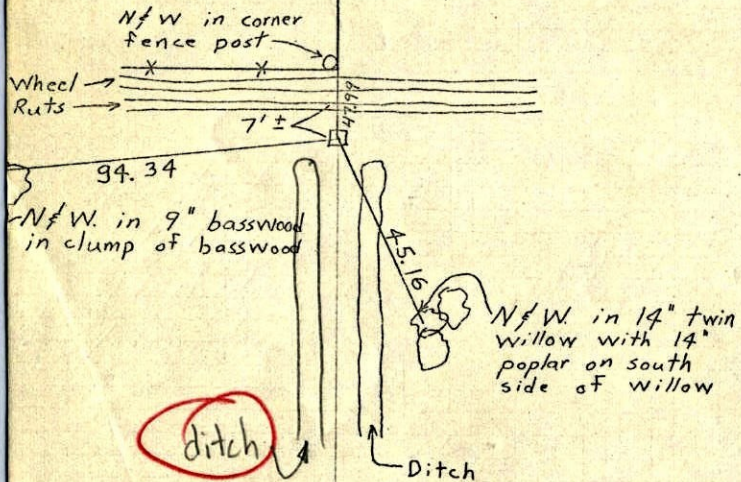 N & W in corner
fence post
Wheel
Ruts
47.99
7' ±
94.34
N & W. in 9" basswood
in clump of basswood
45.16
N & W. in 14" twin
willow with 14"
poplar on south
side of willow
ditch
Ditch